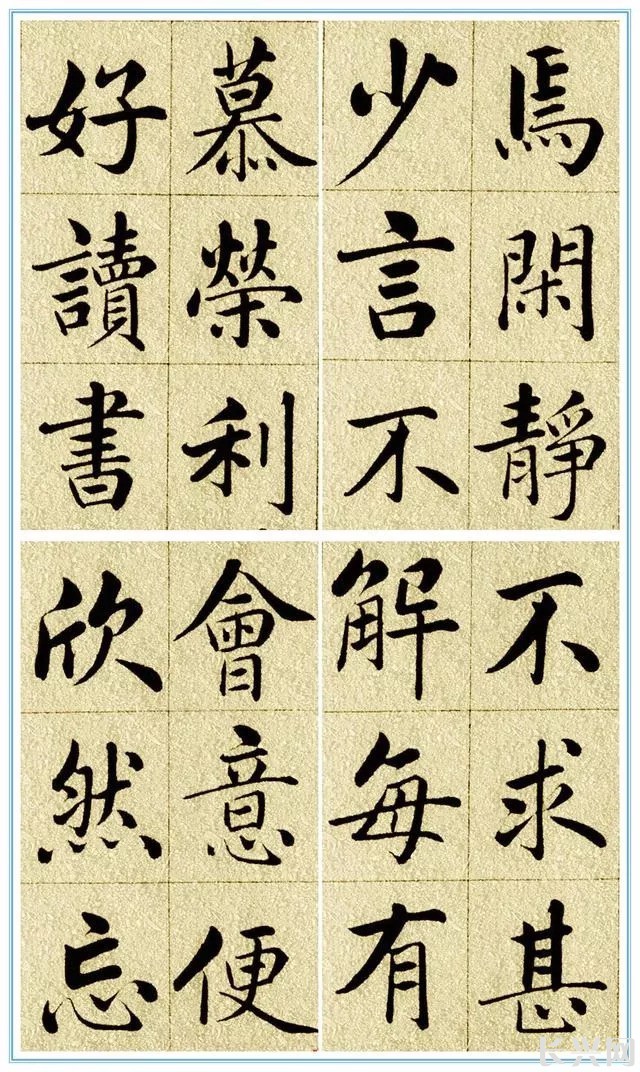 焉閑靜
少言不
慕榮利
好讀書
不求甚
解每有
會意便
欣然忘
长兴网